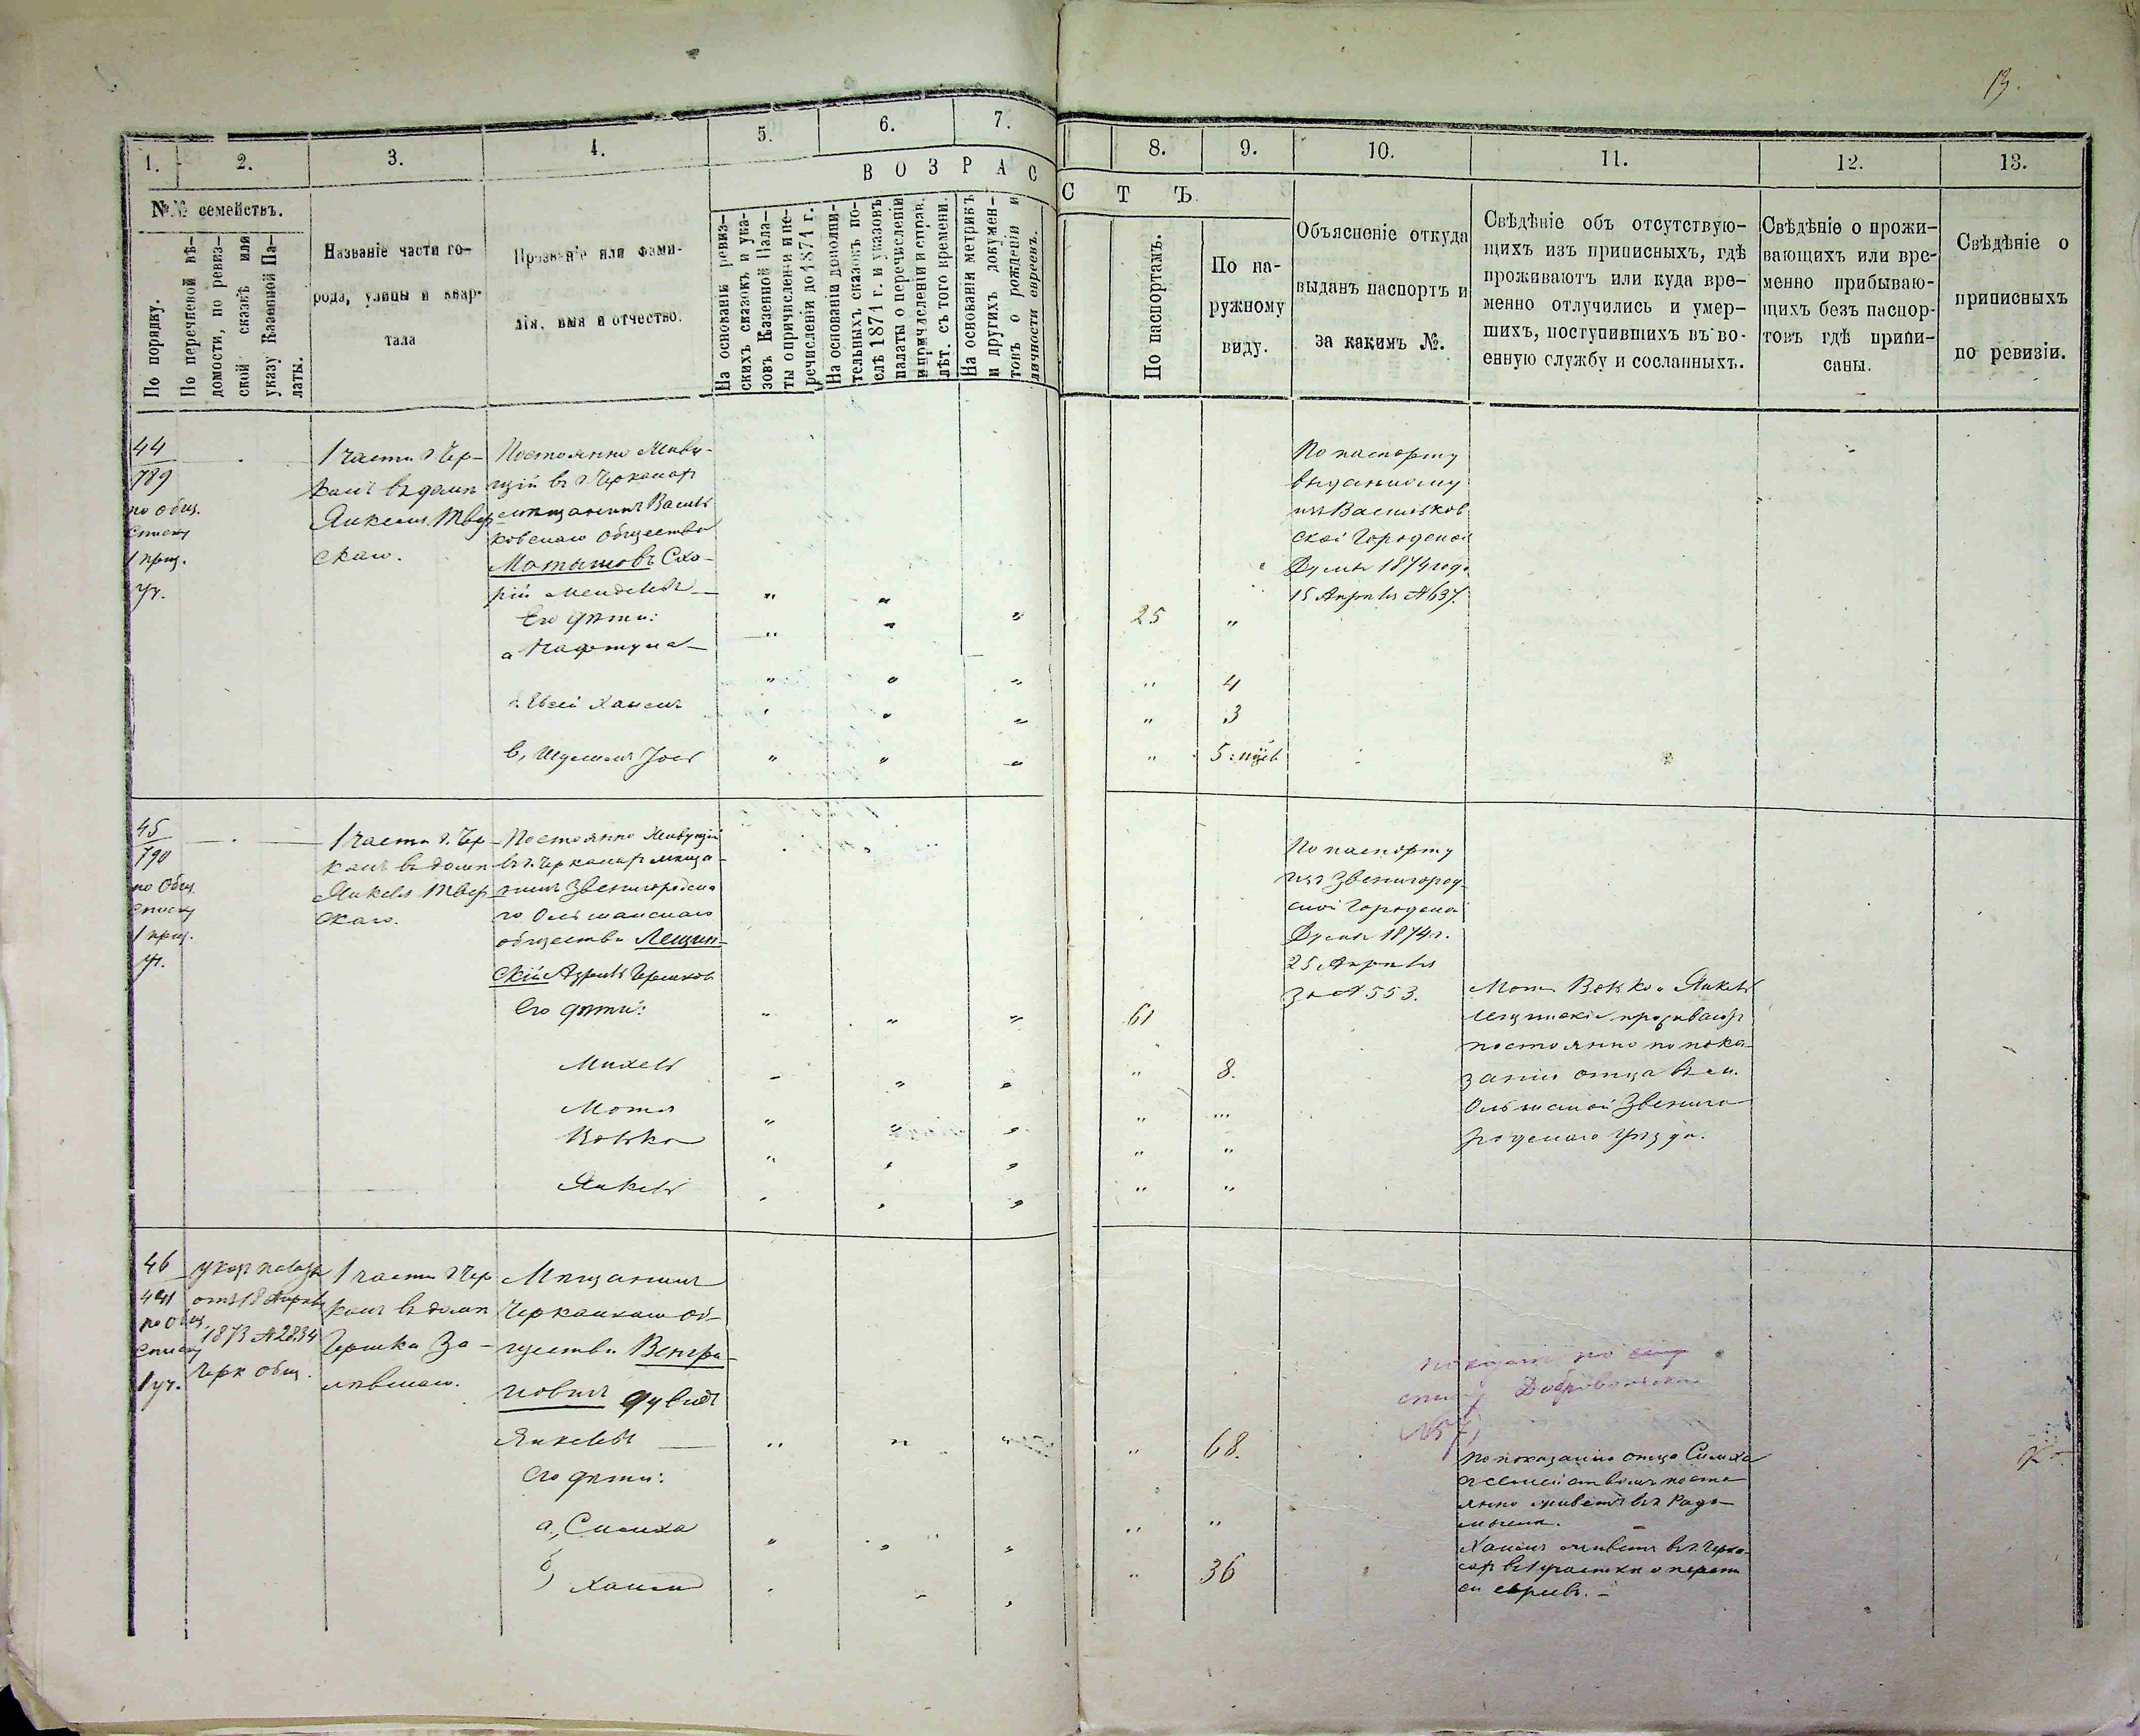 13.
1. 2. 3. 4. 5. 6. 7. 8. 9. 10. 11. 12. 13.
В О З Р А С
С Т Ъ
№№ семействъ.
По порядку.
По перечневой вѣ-
домости, по ревиз-
ской сказкѣ или
указу Казенной Па-
латы.
Названіе части го-
рода, улицы и квар-
тала
Прозваніе или фами-
лія, имя и отчество.
На основаніи ревиз-
скихъ сказокъ и ука-
зовъ Казенной Пала-
ты о причисленіи и пе-
речисленіи до 1871 г.
На основаніи дополни-
тельныхъ сказокъ по-
слѣ 1871 г. и указовъ
палаты о перечисленіи
и причисленіи и справ.
лѣт. съ того времени.
На основаніи метрикъ
и другихъ докумен-
товъ о рожденіи и
личности евреевъ.
По паспортамъ.
По на-
ружному
виду.
Объясненіе откуда
выданъ паспортъ и
за какимъ №.
Свѣдѣніе объ отсутствую-
щихъ изъ приписныхъ, гдѣ
проживаютъ или куда вре-
менно отлучились и умер-
шихъ, поступившихъ въ во-
енную службу и сосланныхъ.
Свѣдѣніе о прожи-
вающихъ или вре-
менно прибываю-
щихъ безъ паспор-
товъ гдѣ припи-
саны.
Свѣдѣніе о
приписныхъ
по ревизіи.
44
789
по общ.
списку
1 приз.
уч.
1 части г. Чер-
касъ въ домѣ
Янкеля Твер
скаго.
Постоянно Живу-
щій въ г. Черкасахъ
мѣщанинъ Василь
ковскаго общества
Матышовъ
Мендель
Его дѣти:
а Нафтула
Хаимъ
в, Іось
25
4
3
5
По паспорту
выданному
изъ Васильков
ской Городской
Думы 1874 года
15 Апрѣля № 637.
45
790
по Общ.
списку
1 приз.
уч.
1 части г. Чер
касъ въ домѣ
Янкеля Твер
скаго.
Постоянно Живущій
въ г. Черкасахъ мѣща-
нинъ Звенигородска
го Ольшанскаго
общества Лещин-
скій Азриль Гершков
Его дѣти:
Михель
Мотя
Волько
Янкель
61
8.
По паспорту
изъ Звенигород-
ской Городской
Думы 1874 г.
25 Апрѣля
за № 553.
Мотя Волько и Янкель
Лещинскіе проживаютъ
постоянно по пока-
занію отца въ м.
Ольшаной Звениго-
родскаго уѣзда.
46
441
по общ.
списку
1 уч.
указ палаты
отъ 18 Апрѣля
1873 № 2834
Черк общ.
1 части г. Чер
касъ въ домѣ
Гершка За-
славскаго.
Мѣщанинъ
Черкаскаго об-
щества Венгри-
новичъ Дувидъ
Янкель
его дѣти:
а, Симха
б, Хаимъ
68.
36
по
списку Добровольско
по показанію отца Симха
съ семействомъ посто-
янно живетъ въ Радо-
мысли.
Хаимъ живетъ въ г. Черка-
сахъ въ 1 участкѣ о перепи
си евреевъ. -